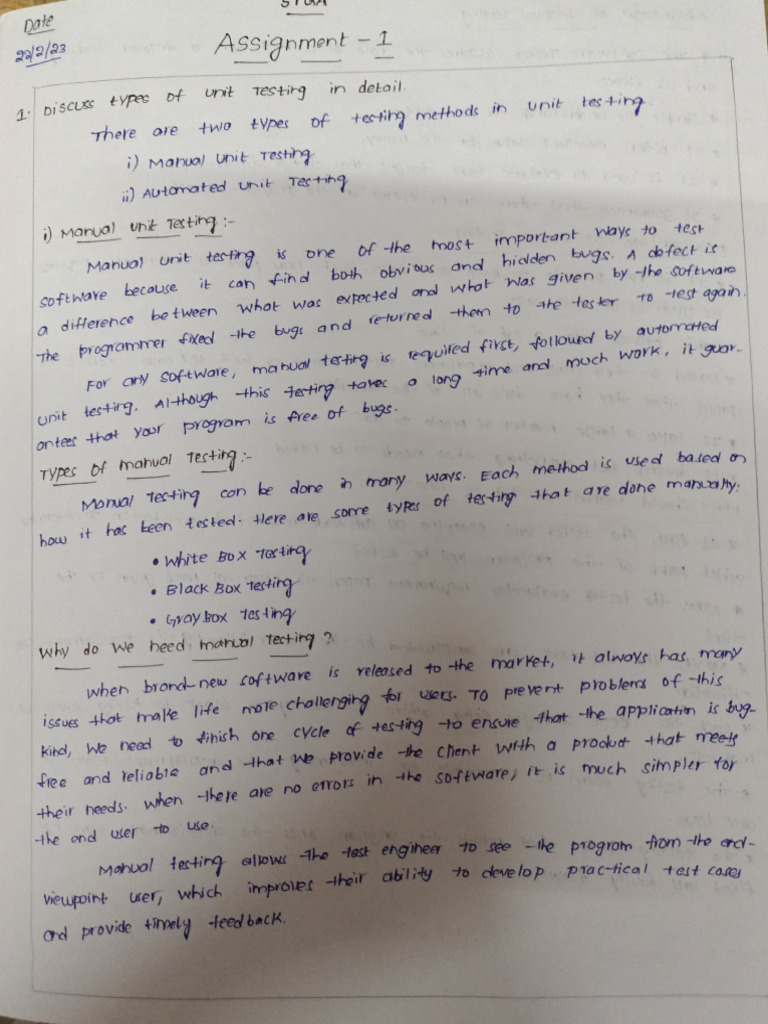 STQA
Date
22/2/23
Assignment - 1
1. Discuss types of unit testing in detail.
There are two types of testing methods in unit testing.
i) Manual unit Testing
ii) Automated unit Testing
i) Manual unit Testing :-
Manual unit testing is one of the most important ways to test
software because it can find both obvious and hidden bugs. A defect is
a difference between what was expected and what was given by the software
The programmer fixed the bugs and returned them to the tester to test again.
For any software, manual testing is required first, followed by automated
unit testing. Although this testing takes a long time and much work, it guar-
antees that your program is free of bugs.
Types of manual Testing :-
Manual testing can be done in many ways. Each method is used based on
how it has been tested. Here are some types of testing that are done manually:
• White Box Testing
• Black Box Testing
• Gray box Testing
Why do we need manual testing ?
When brand-new software is released to the market, it always has many
issues that make life more challenging for users. To prevent problems of this
kind, we need to finish one cycle of testing to ensure that the application is bug-
free and reliable and that we provide the client with a product that meets
their needs. When there are no errors in the software, it is much simpler for
the end user to use.
Manual testing allows the test engineer to see the program from the end-
viewpoint user, which improves their ability to develop practical test cases
and provide timely feedback.